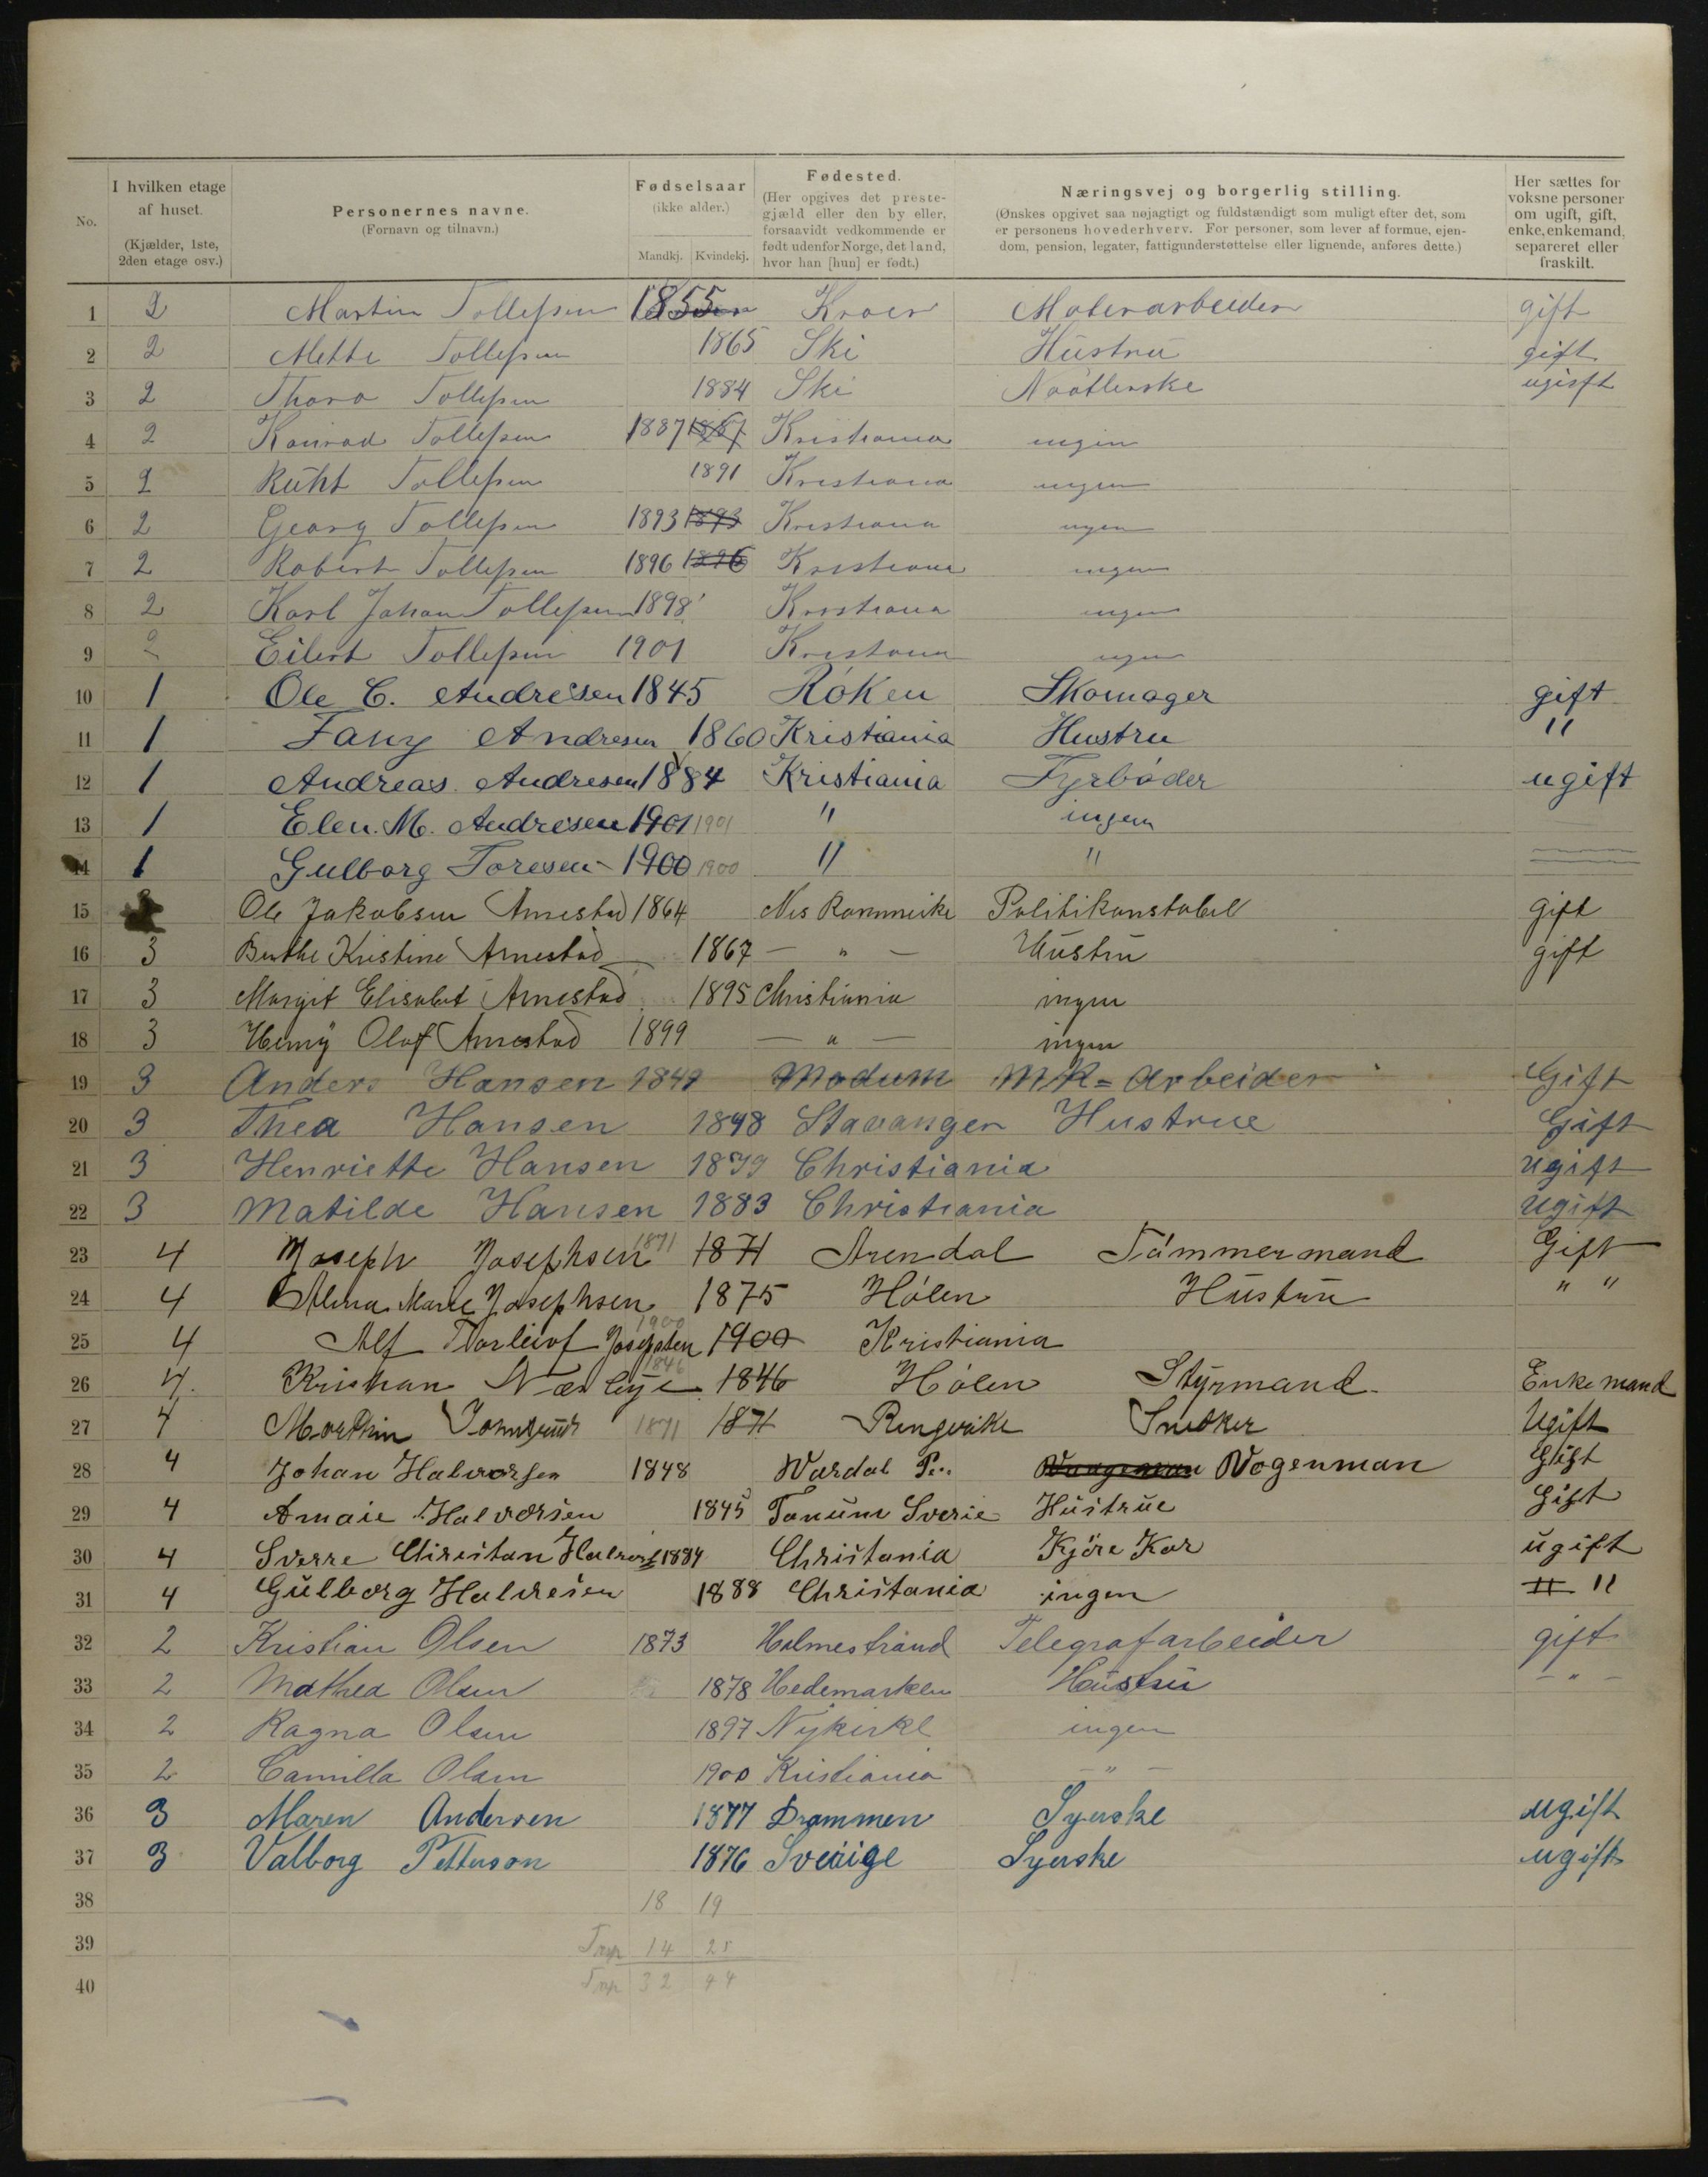 No.
I hvilken etage af huset. (Kjælder, 1ste, 2den etage osv.)
Personernes navne. (Fornavn og tilnavn.)
Fødselsaar (ikke alder.) Mandkj. Kvindekj.
Fødested. (Her opgives det prestegjæld eller den by eller, forsaavidt vedkommende er født udenfor Norge, det land, hvor han [hun] er født.)
Næringsvej og borgerlig stilling. (Ønskes opgivet saa nøjagtigt og fuldstændigt som muligt efter det, som er personens hovederhverv. For personer, som lever af formue, ejendom, pension, legater, fattigunderstøttelse eller lignende, anføres dette.)
Her sættes for voksne personer om ugift, gift, enke, enkemand, separeret eller fraskilt.
1 2 Martin Tollefsen 1855 Kroer Malerarbeider gift
2 2 Mette Tollefsen 1865 Ski Hustru gift
3 2 Thora Tollefsen 1884 Ski ugisft
4 2 Konrad Tollefsen 1887 1887 Kristiania ingen
5 2 Ruht Tollefsen 1891 Kristiania ingen
6 2 Georg Tollefsen 1893 1893 Kristiania ingen
7 2 Robert Tollefsen 1896 1896 Kristiania ingen
8 2 Karl Johan Tollefsen 1898 Kristiania ingen
9 2 Eilert Tollefsen 1901 Kristiania ingen
10 1 Ole C. Andresen 1845 Røken Skomager gift
11 1 Fany Andresen 1860 Kristiania Hustru "
12 1 Andreas Andresen 1884 Kristiania Fyrbøder ugift
13 1 Elen. M. Andresen 1901 1901 " ingen
14 1 Gulborg Toresen 1900 1900 " "
15 Ole Jakobsen Arnestad 1864 Nes Rommerike Politikonstabel gift
16 3 Berthe Kristine Arnestad 1867 — " — Hustru gift
17 3 Margit Elisabet Arnestad 1895 Christiania ingen
18 3 Henry Olaf Arnestad 1899 — " — ingen
19 3 Anders Hansen Modum MK= Arbeider Gift
20 3 Thea Hansen 1848 Stavanger Hustrue Gift
21 3 Henriette Hansen 1879 Christiania ugift
22 3 Matilde Hansen 1883 Christiania ugift
23 4 Joseph Josephsen 1871 1871 Arendal Tømmermand Gift
24 4 Alma Marie Josephsen 1875 Hølen Hustru " "
25 4 Alf Torleiof Josephsen 1900 1900 Kristiania
26 4. Kristian Nærbye 1846 1846 Hølen Styrmand Enkemand
27 4 Marthin 1871 1871 Ringerike Snedker Ugift
28 4 Johan Halvorsen 1848 Wardal P. Vognman Gift
29 4 Amaie Halvorsen 1845 Tanum Sverie Hustrue Gift
30 4 Sverre Christian Halvors 1884 Christania Kjøre Kar ugift
31 4 Gulborg Halvresen 1888 Christania ingen " "
32 2 Kristian Olsen 1873 Holmestrand Telegrafarbeider gift
33 2 Mathea Olsen 1878 Hedemarken Hustru — " —
34 2 Ragna Olsen 1897 Nykirke ingen
35 2 Camilla Olsen 1900 Kristiania — " —
36 3 Maren Andersen 1877 Drammen Syerske ugift
37 3 Valborg Petterson 1876 Sveiige Syerske ugift
38 18 19
39 14 25
40 32 44